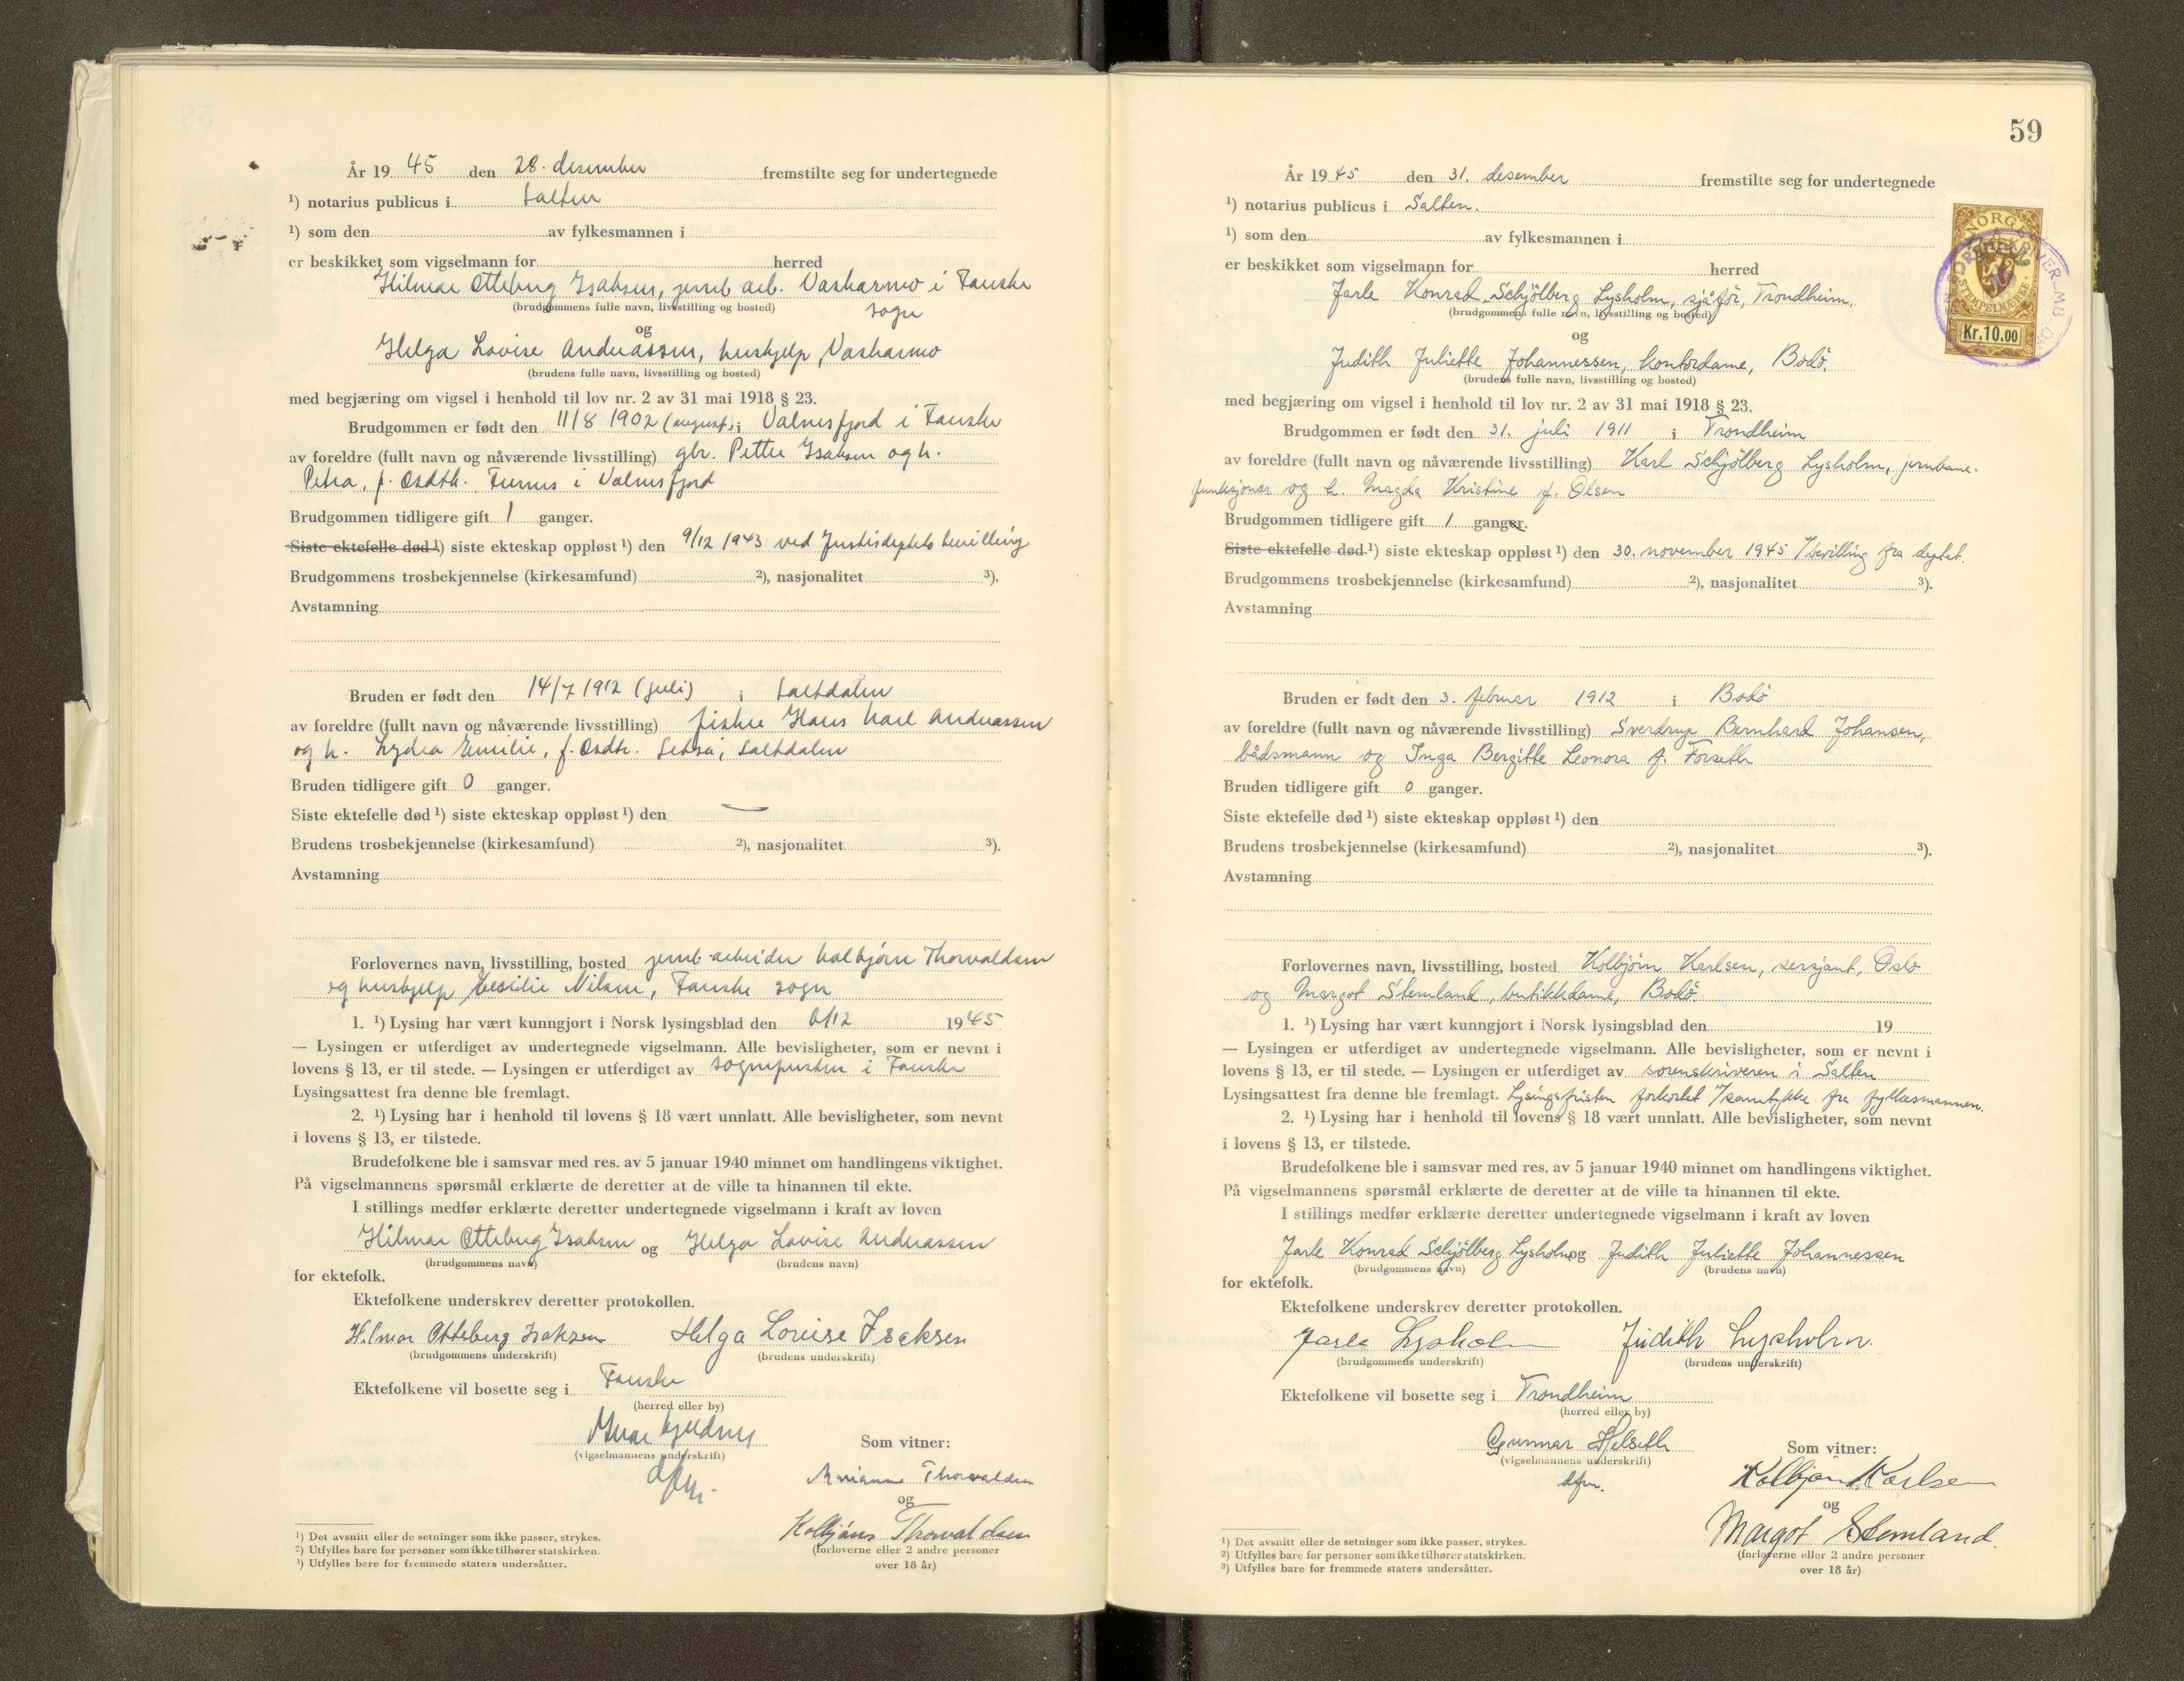 År 19 45 den 28. desember fremstilte seg for undertegnede
¹) notarius publicus i Salten
¹) som den av fylkesmannen i
er beskikket som vigselmann for herred
Hilmar Otteburg Isaksen, jernb arb. Vasharmo i Fauske
(brudgommens fulle navn, livsstilling og bosted) sogn
og
Helga Lovise Andreassen, hushjelp, Vasharmo
(brudens fulle navn, livsstilling og bosted)
med begjæring om vigsel i henhold til lov nr. 2 av 31 mai 1918 § 23.
Brudgommen er født den 11/8 1902 (august) i Valnesfjord i Fauske
av foreldre (fullt navn og nåværende livsstilling) gbr. Petter Isaksen og h.
Petra, f. Osdtr. Furnes i Valnesfjord
Brudgommen tidligere gift 1 ganger.
Siste ektefelle død ¹) siste ekteskap oppløst ¹) den 9/12 1943 ved Justisdeptets bevilling
Brudgommens trosbekjennelse (kirkesamfund) ²), nasjonalitet ³).
Avstamning
Bruden er født den 14/7 1912 (juli) i Saltdalen
av foreldre (fullt navn og nåværende livsstilling) fisker Hans Karl Andreassen
og h. Lydia Emilie, f. Osdtr. Setså, Saltdalen
Bruden tidligere gift 0 ganger.
Siste ektefelle død ¹) siste ekteskap oppløst ¹) den —
Brudens trosbekjennelse (kirkesamfund) ²), nasjonalitet ³).
Avstamning
Forlovernes navn, livsstilling, bosted jernb. arbeider Kolbjørn Thorvaldsen
og hushjelp Cecilie Nilsen, Fauske sogn
1. ¹) Lysing har vært kunngjort i Norsk lysingsblad den 6/12 1945
— Lysingen er utferdiget av undertegnede vigselmann. Alle bevisligheter, som er nevnt i
lovens § 13, er til stede. — Lysingen er utferdiget av sognepresten i Fauske
Lysingsattest fra denne ble fremlagt.
2. ¹) Lysing har i henhold til lovens § 18 vært unnlatt. Alle bevisligheter, som nevnt
i lovens § 13, er tilstede.
Brudefolkene ble i samsvar med res. av 5 januar 1940 minnet om handlingens viktighet.
På vigselmannens spørsmål erklærte de deretter at de ville ta hinannen til ekte.
I stillings medfør erklærte deretter undertegnede vigselmann i kraft av loven
Hilmar Otteburg Isaksen og Helga Lovise Andreassen
(brudgommens navn) (brudens navn)
for ektefolk.
Ektefolkene underskrev deretter protokollen.
Hilmar Otteberg Isaksen Helga Louise Isaksen
(brudgommens underskrift) (brudens underskrift)
Ektefolkene vil bosette seg i Fauske
(herred eller by)
(vigselmannens underskrift)
dfm.
Som vitner:
Marianne Thorvaldsen
og
Kolbjörns Thorvaldsen
(forloverne eller 2 andre personer
over 18 år)
¹) Det avsnitt eller de setninger som ikke passer, strykes.
²) Utfylles bare for personer som ikke tilhører statskirken.
³) Utfylles bare for fremmede staters undersåtter.
59
År 19 45 den 31. desember fremstilte seg for undertegnede
¹) notarius publicus i Salten.
¹) som den av fylkesmannen i
er beskikket som vigselmann for herred
Jarle Konrad Schjölberg Lysholm, sjåför, Trondheim.
(brudgommens fulle navn, livsstilling og bosted)
og
Judith Juliette Johannessen, kontordame, Bodö.
(brudens fulle navn, livsstilling og bosted)
NORGE
STEMPELMERKE
Kr. 10.00
med begjæring om vigsel i henhold til lov nr. 2 av 31 mai 1918 § 23.
Brudgommen er født den 31. juli 1911 i Trondheim
av foreldre (fullt navn og nåværende livsstilling) Karl Schjölberg Lysholm, jernbane-
funksjonær og h. Magda Kristine f. Olsen
Brudgommen tidligere gift 1 ganger.
Siste ektefelle død.¹) siste ekteskap oppløst ¹) den 30. november 1945 v/bevilling fra deptet.
Brudgommens trosbekjennelse (kirkesamfund) ²), nasjonalitet ³).
Avstamning
Bruden er født den 3. februar 1912 i Bodö
av foreldre (fullt navn og nåværende livsstilling) Sverdrup Bernhard Johansen,
bådsmann og Inga Bergitte Leonora f. Forseth
Bruden tidligere gift 0 ganger.
Siste ektefelle død ¹) siste ekteskap oppløst ¹) den
Brudens trosbekjennelse (kirkesamfund) ²), nasjonalitet ³).
Avstamning
Forlovernes navn, livsstilling, bosted Kolbjörn Karlsen, sersjant, Oslo
og Margot Stemland, butikkdame, Bodö
1. ¹) Lysing har vært kunngjort i Norsk lysingsblad den 19
— Lysingen er utferdiget av undertegnede vigselmann. Alle bevisligheter, som er nevnt i
lovens § 13, er til stede. — Lysingen er utferdiget av sorenskriveren i Salten
Lysingsattest fra denne ble fremlagt. Lysingsfristen forkortet v/samtykke fra fylkesmannen.
2. ¹) Lysing har i henhold til lovens § 18 vært unnlatt. Alle bevisligheter, som nevnt
i lovens § 13, er tilstede.
Brudefolkene ble i samsvar med res. av 5 januar 1940 minnet om handlingens viktighet.
På vigselmannens spørsmål erklærte de deretter at de ville ta hinannen til ekte.
I stillings medfør erklærte deretter undertegnede vigselmann i kraft av loven
Jarle Konrad Schjölberg Lysholm og Judith Juliette Johannessen
(brudgommens navn) (brudens navn)
for ektefolk.
Ektefolkene underskrev deretter protokollen.
Jarle Lysholm Judith Lysholm.
(brudgommens underskrift) (brudens underskrift)
Ektefolkene vil bosette seg i Trondheim
(herred eller by)
Gunnar Helseth
(vigselmannens underskrift)
dfm.
Som vitner:
Kolbjörn Karlsen
og
Margot Stemland.
(forloverne eller 2 andre personer
over 18 år)
¹) Det avsnitt eller de setninger som ikke passer, strykes.
²) Utfylles bare for personer som ikke tilhører statskirken.
³) Utfylles bare for fremmede staters undersåtter.